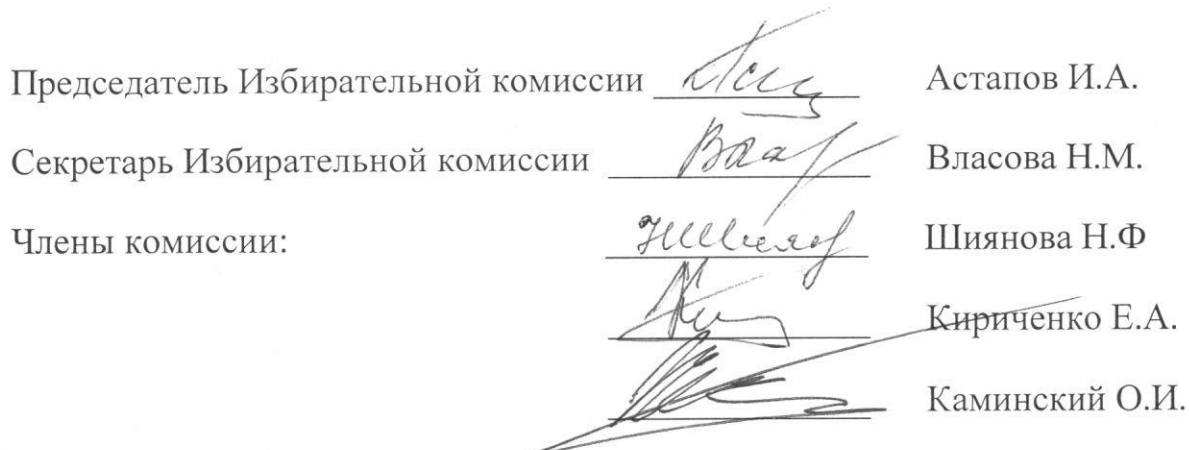 Председатель Избирательной комиссии Астапов И.А.
Секретарь Избирательной комиссии Власова Н.М.
Члены комиссии: Шиянова Н.Ф
Кириченко Е.А.
Каминский О.И.